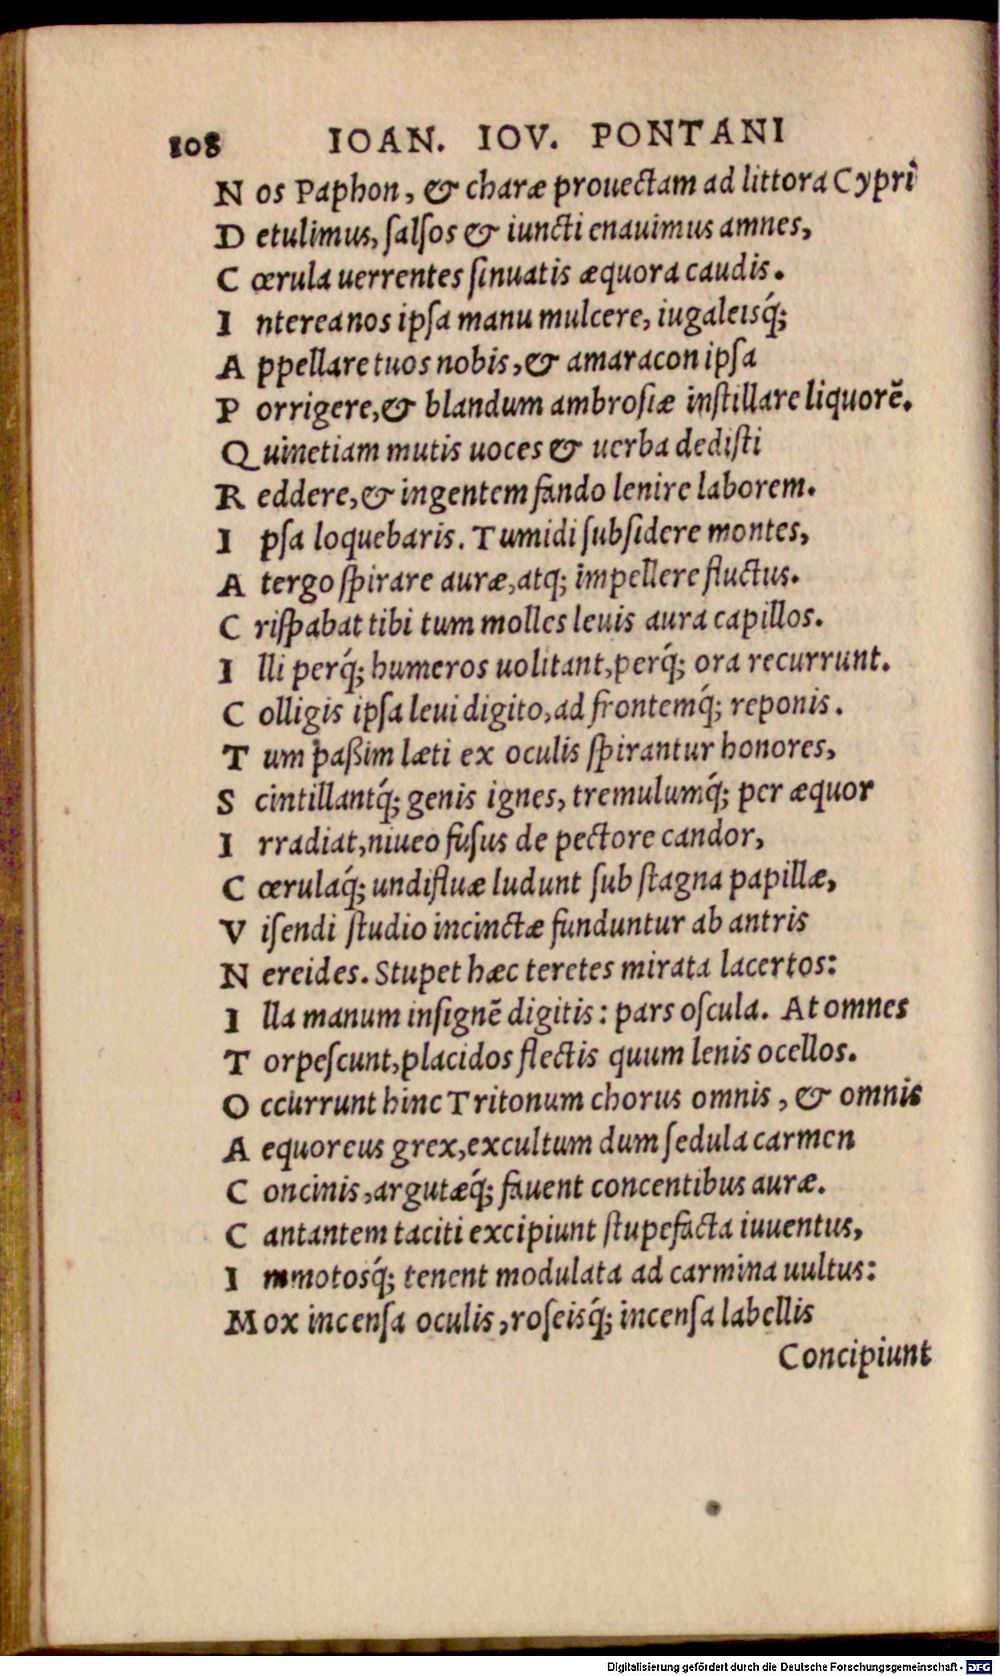 108 IOAN. IOV. PONTANI
N os Paphon, & charæ prouectam ad littora Cypri
D etulimus, ſalſos & iuncti enauimus amnes,
C œrula uerrentes ſinuatis æquora caudis.
I nterea nos ipſa manu mulcere, iugaleisq́;
A ppellare tuos nobis, & amaracon ipſa
P orrigere, & blandum ambroſiæ inſtillare liquorẽ.
Q uinetiam mutis uoces & uerba dediſti
R eddere, & ingentem fando lenire laborem.
I pſa loquebaris. Tumidi ſubſidere montes,
A tergo ſpirare auræ, atq; impellere fluctus.
C riſpabat tibi tum molles leuis aura capillos.
I lli perq́; humeros uolitant, perq́; ora recurrunt.
C olligis ipſa leui digito, ad frontemq́; reponis.
T um paßim læti ex oculis ſpirantur honores,
S cintillantq́; genis ignes, tremulumq́; per æquor
I rradiat, niueo fuſus de pectore candor,
C œrulaq́; undifluæ ludunt ſub ſtagna papillæ,
V iſendi ſtudio incinctæ funduntur ab antris
N ereides. Stupet hæc teretes mirata lacertos:
I lla manum inſignẽ digitis: pars oſcula. At omnes
T orpeſcunt, placidos flectis quum lenis ocellos.
O ccurrunt hinc Tritonum chorus omnis, & omnis
A equoreus grex, excultum dum ſedula carmen
C oncinis, argutæq́; fauent concentibus auræ.
C antantem taciti excipiunt ſtupefacta iuuentus,
I mmotosq́; tenent modulata ad carmina uultus:
M ox incenſa oculis, roſeisq́; incenſa labellis
Concipiunt
Digitalisierung gefördert durch die Deutsche Forschungsgemeinschaft - DFG